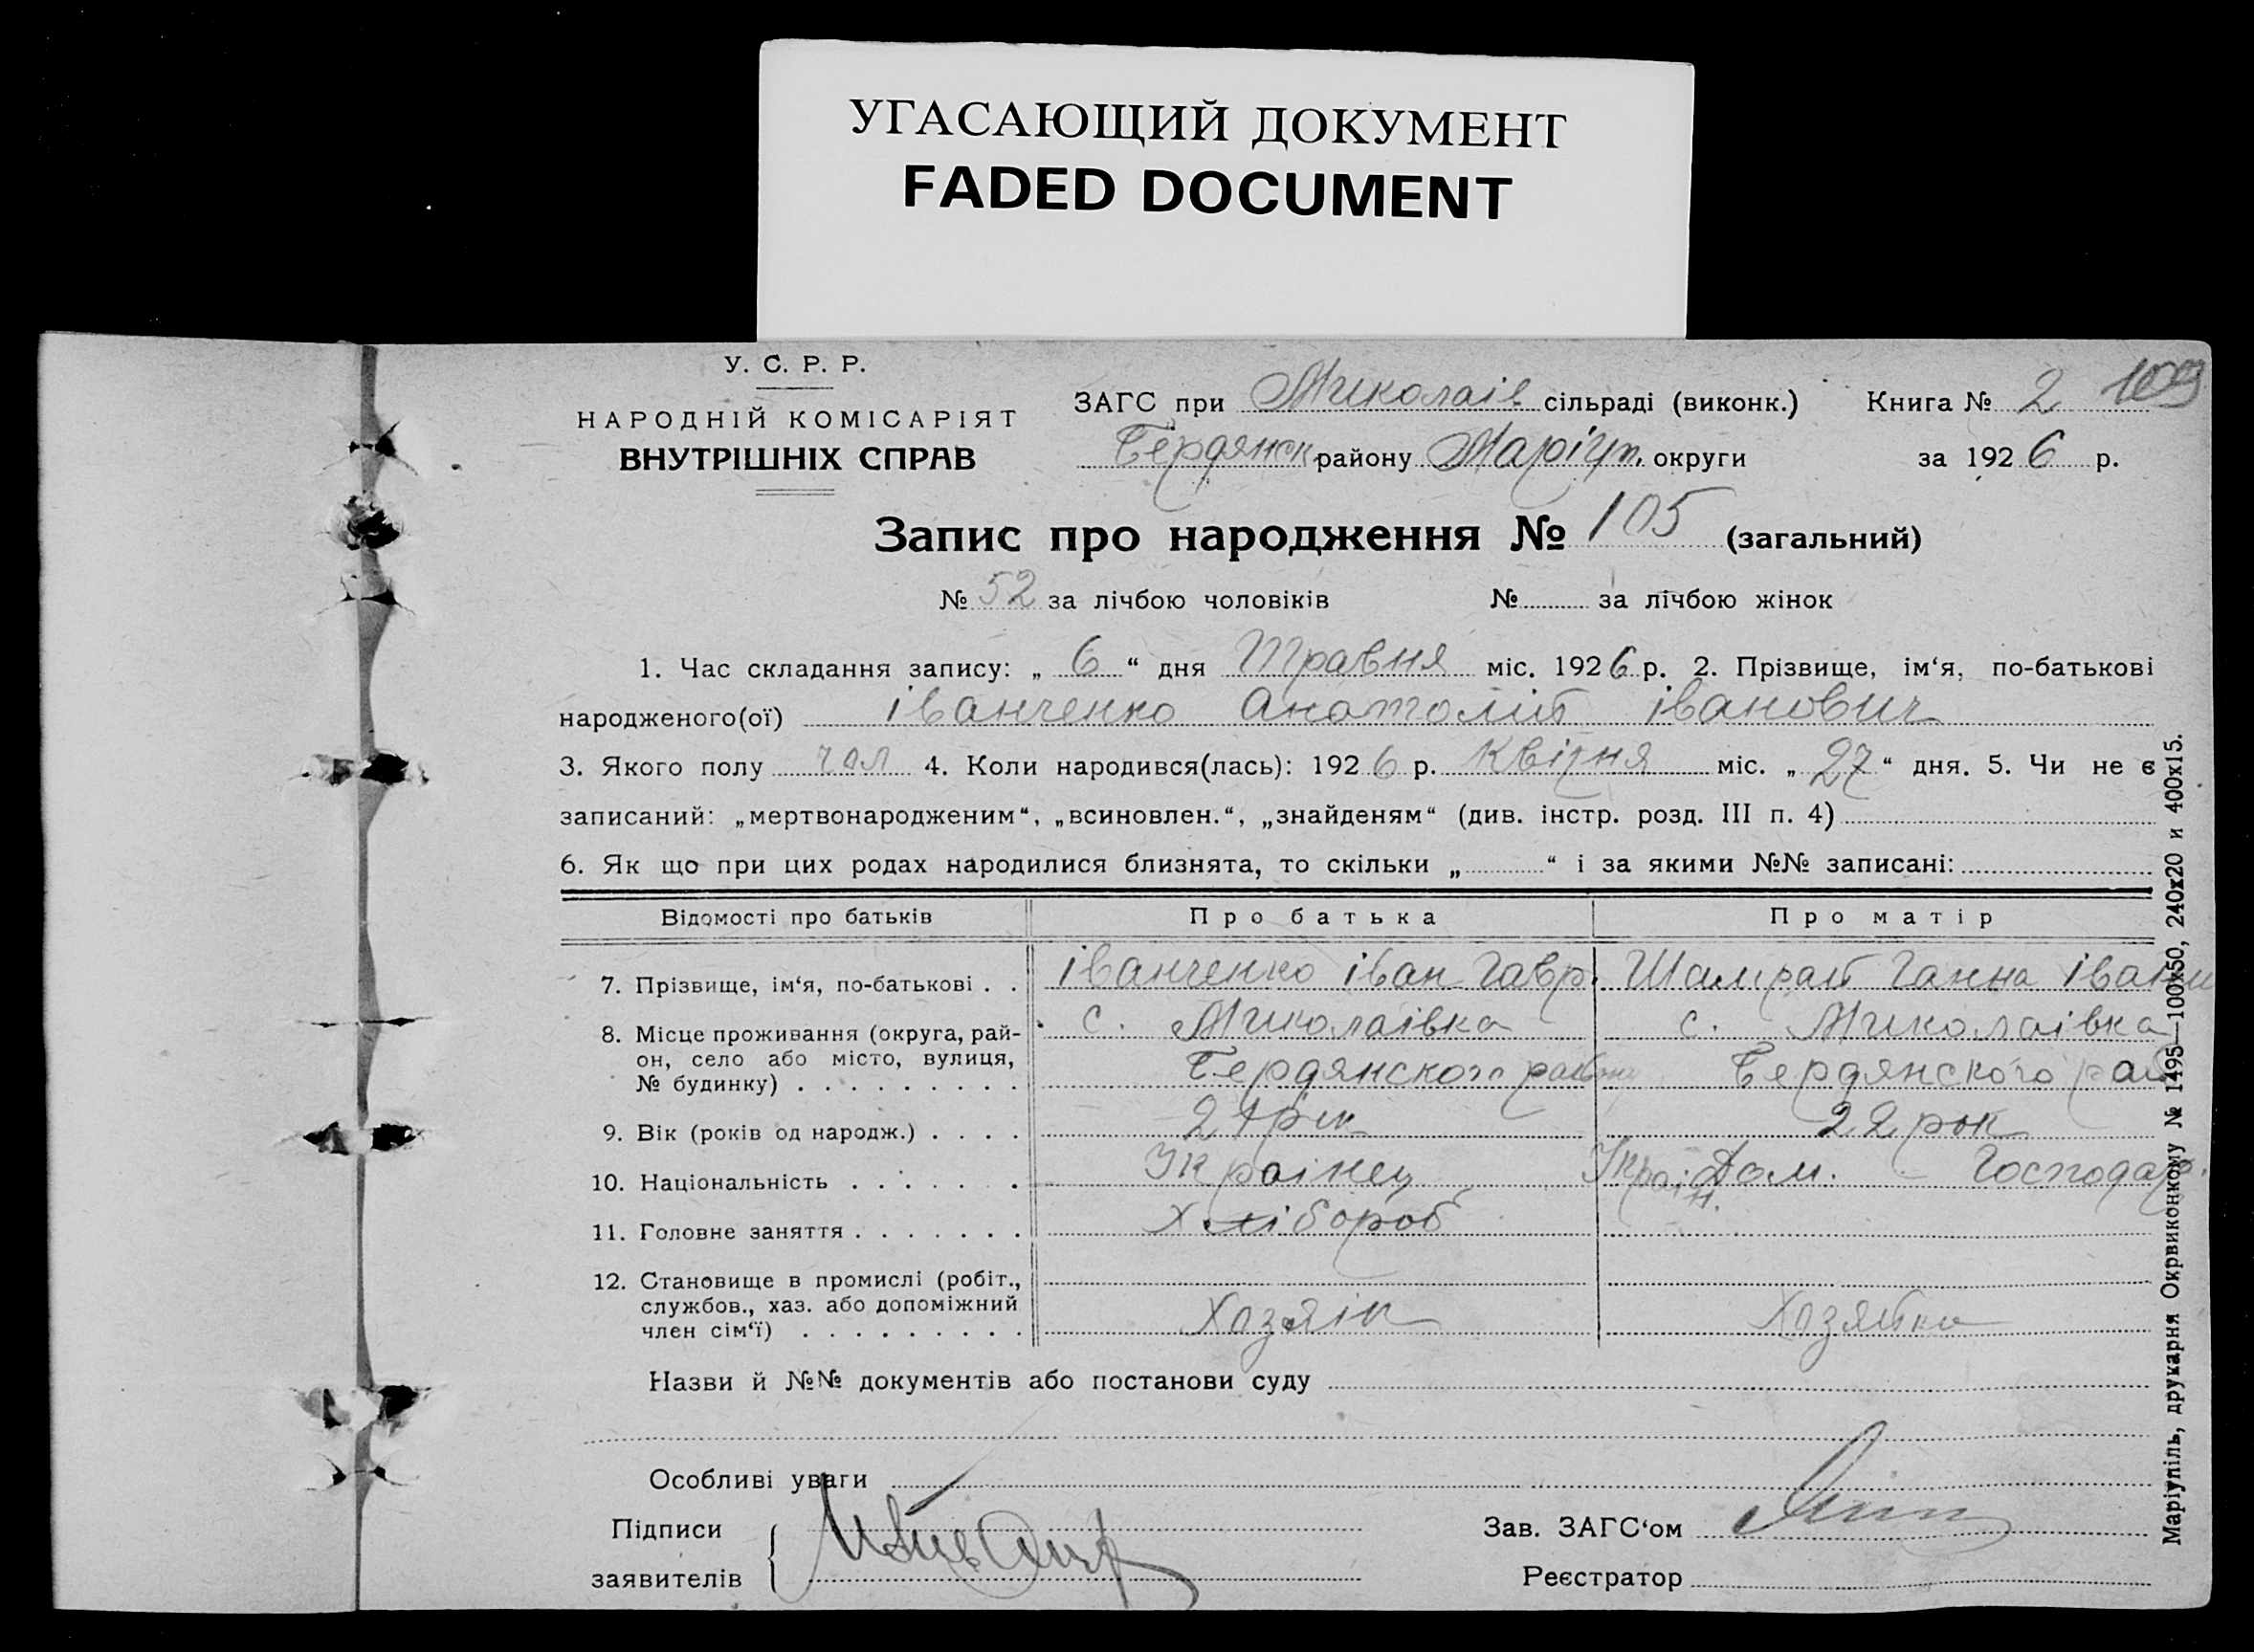 УГАСАЮЩИЙ ДОКУМЕНТ
FADED DOCUMENT
У. С. Р. Р.
НАРОДНІЙ КОМІСАРІЯТ
ВНУТРІШНІХ СПРАВ
ЗАГС при Миколаів сільраді (виконк.) Книга № 2 109
Бердянск району Маріуп. округи за 1926 р.
Запис про народження № 105 (загальний)
№ 52 за лічбою чоловіків № за лічбою жінок
1. Час складання запису: „ 6 “ дня Травня міс. 1926 р. 2. Прізвище, ім‘я, по-батькові
народженого(ої) іванченко Анатолій іванович
3. Якого полу чол 4. Коли народився(лась): 1926 р. Квітня міс. „ 27 “ дня. 5. Чи не є
записаний: „мертвонародженим“, „всиновлен.“, „знайденям“ (див. інстр. розд. III п. 4)
6. Як що при цих родах народилися близнята, то скільки „ “ і за якими №№ записані:
Відомості про батьків Про батька Про матір
7. Прізвище, ім‘я, по-батькові . . іванченко іван Гавр. Шамрай Ганна Іван
8. Місце проживання (округа, рай- с. Миколаівка с. Миколаівка
он, село або місто, вулиця,
№ будинку) . . . . . . . . . Бердянского району Бердянского рай
9. Вік (років од народж.) . . . . 21 рік 22 рок
10. Національність . . . . . . . Украінец Украін. Дом. Господар.
11. Головне заняття . . . . . . . Хлібороб
12. Становище в промислі (робіт.,
службов., хаз. або допоміжний
член сім‘ї) . . . . . . . . . Хозяін Хозяйка
Назви й №№ документів або постанови суду
Особливі уваги
Підписи
заявителів
Зав. ЗАГС‘ом
Реєстратор
Маріупіль, друкарня Окрвиконкому № 1495—100х50, 240х20 и 400х15.